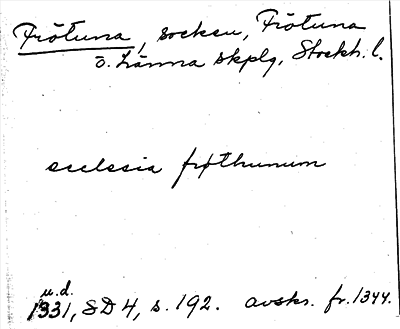 Frötuna, socken, Frötuna
ö. Länna skplg, Stockh. l.
ecclesia frøthunum
u.d.
1331, SD 4, s. 192. avskr. fr. 1344.